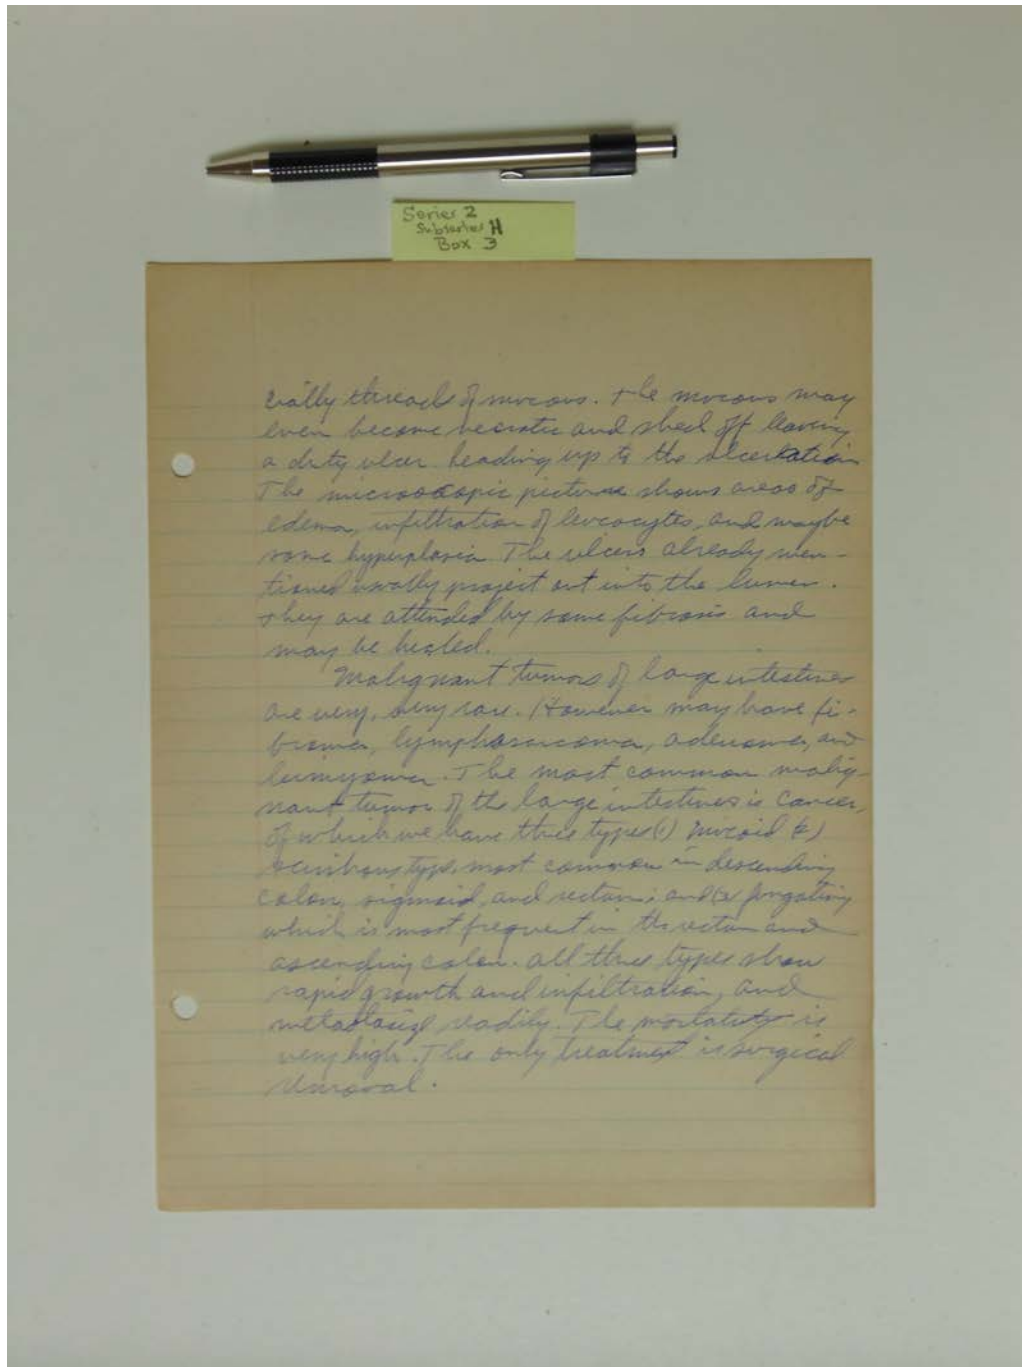 Series 2
Subseries H
Box 3
cially threads of mucous. The mucous may
even become necrotic and shed off leaving
a dirty ulcer heading up to the ulceration
The microscopic picture shows areas of
edema, infiltration of leucocytes, and maybe
some hyperplasia. The ulcers already men-
tioned usually project out into the lumen.
They are attended by some fibrosis and
may be healed.
Malignant tumors of large intestines
are very, very rare. However may have fi-
broma, lymphosarcoma, adenoma, and
leimyoma. The most common malig-
nant tumor of the large intestines is cancer,
of which we have three types (1) mucoid (2)
type, most common in descending
colon, sigmoid, and rectum; and (3) fungating
which is most frequent in the rectum and
ascending colon. All three types show
rapid growth and infiltration, and
metastasize readily. The mortality is
very high. The only treatment is surgical
removal.